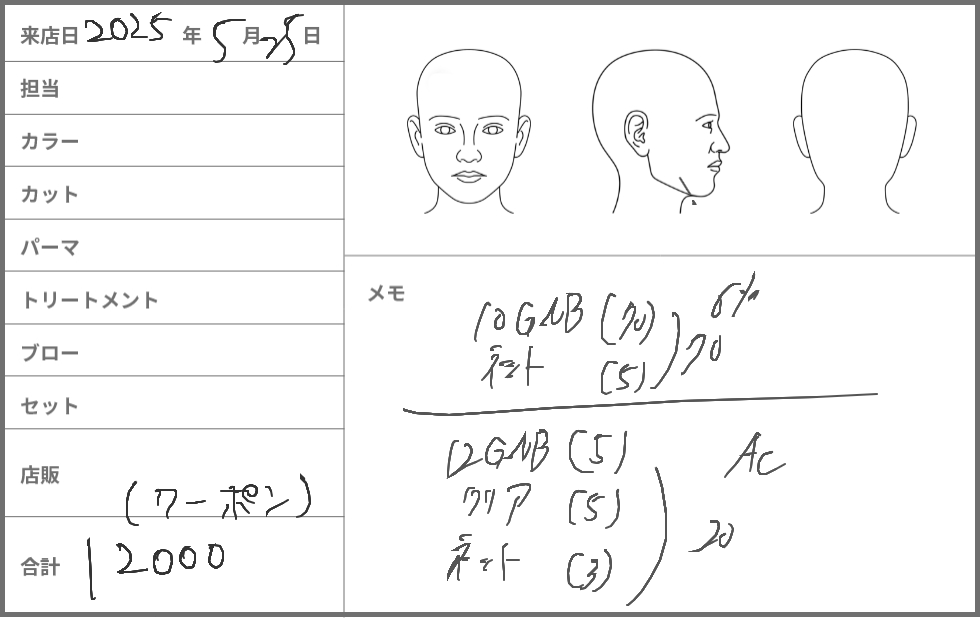 来店日 2025 年 5 月 25 日
担当
カラー
カット
パーマ
トリートメント
ブロー
セット
店販
(クーポン)
合計 12000
メモ
10GNB (70) 6%
ネット (5) 70
12GNB (5) Ac
クリア (5)
20
ネット (3)